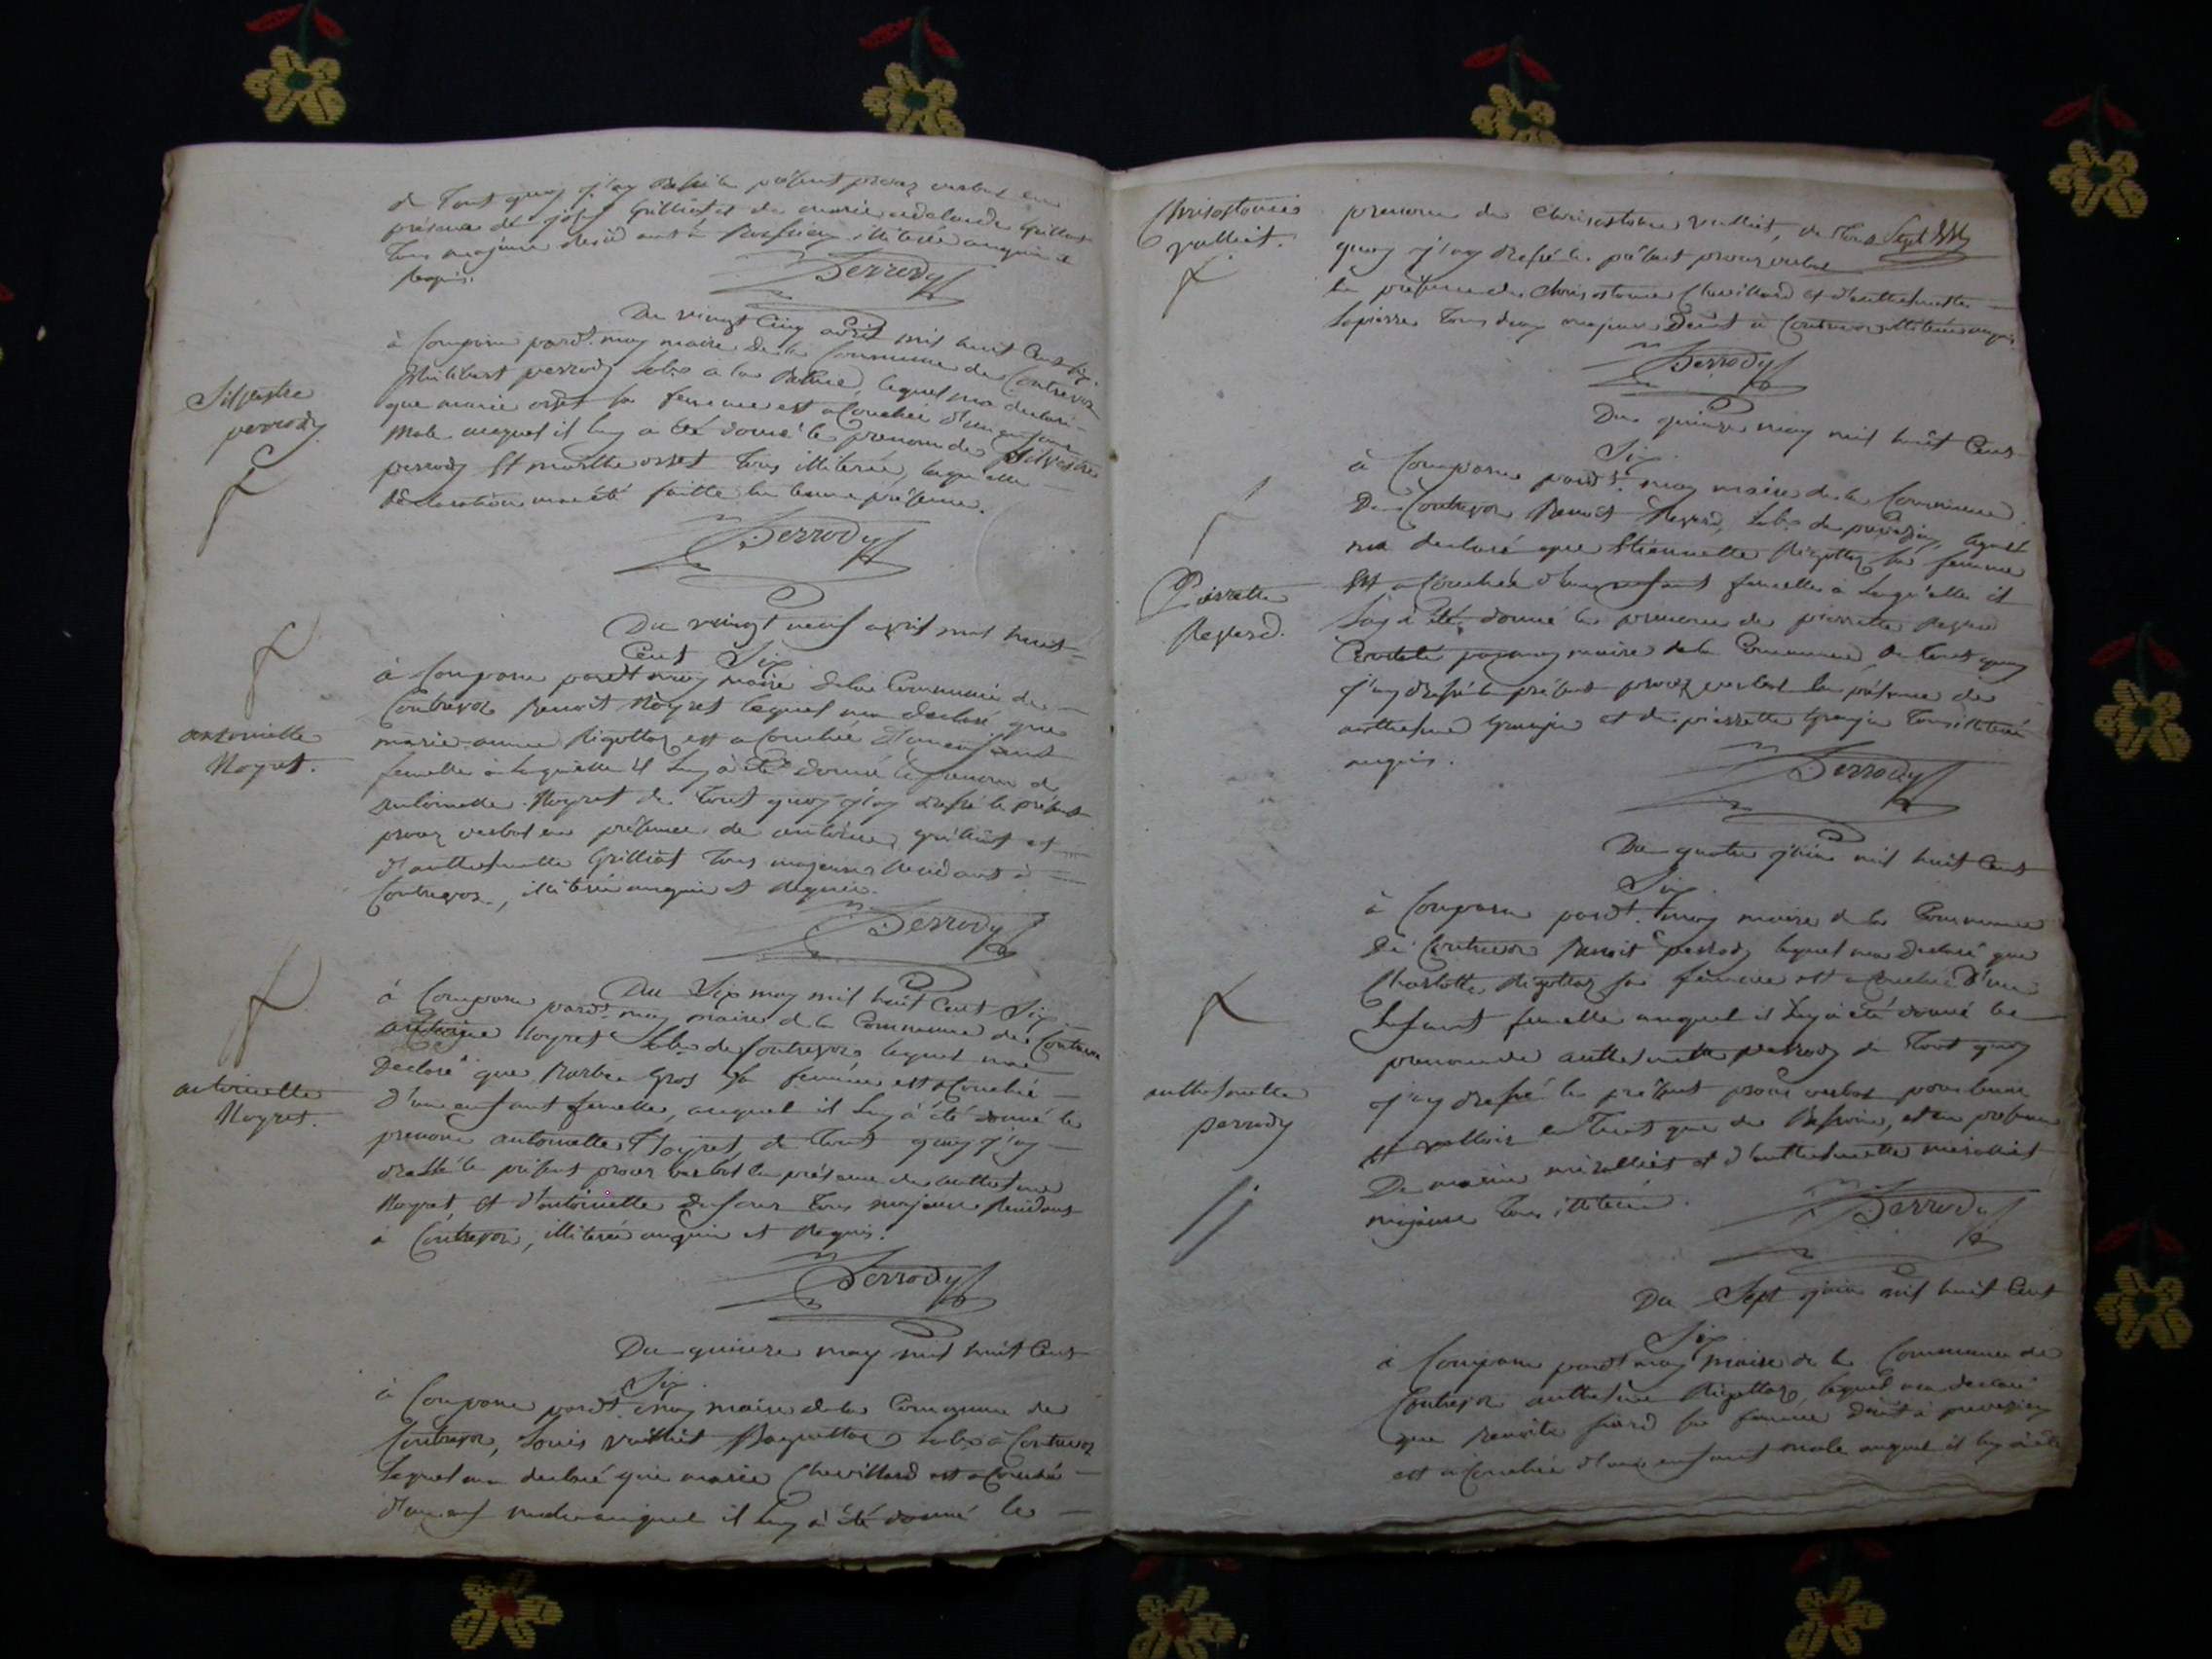 de Tout quoy j'ay dressé le présent procez verbal en
présence de josef Grilliet et de marie adelaide Grilliet
Tous majeure
Requis.
Perrody
Du vingt Cinq avril mil huit Cens Six
à Comparu pardt. moy maire de la Commune de Contrevoz
philibert perrody Lab. à la lequel ma declaré
que marie osset sa femme est acouchée d'un enfant
Male auquel il luy a été donné le prenom de Silvestre
perrody Et marthe osset Tous illiterée, laquelle
déclaration ma été faitte en leurs présence.
Perrody
Silvestre
perrody
Du vingt neuf avril mil huit
Cent Six
à Comparu pardt moy maire de la Commune de
Contrevoz Benoit Noyret lequel ma declaré que
marie anne Rigottaz est acouchée d'un enfant
femelle à laquelle il luy à été donné le prenom de
antoinette Noyret de Tout quoy j'ay dressé le présent
procez verbal en présence de antoine grilliet et
d'anthelmette Grilliet Tous majeures Residant à
Contrevoz, illiterée enquis et Requis.
Perrody
antoinette
Noyret.
Du Six may mil huit Cent Six
à Comparu pardt. moy maire de la Commune de Contrevoz
antoine Noyret Lab. de Contrevoz lequel ma
Declaré que Barbe Gros sa femme est acouchée
d'un enfant femelle, auquel il luy à été donné le
prenom antoinette Noyret, de Tout quoy j'ay
dressé le présent procez verbal en présence de anthelme
Noyret, et d'antoinette Tous majeure Residant
à Contrevoz, illiterée enquis et Requis.
Perrody
antoinette
Noyret.
Du quinze may mil huit Cens
Six
à Comparu pardt. moy maire de la Commune de
Contrevoz, Louis Vulliet Lab. à Contrevoz
Lequel ma declaré que marie Chevillard est acouchée
d'un enf male auquel il luy à été donné le
Chrisostome
vulliet.
prenom de Chrisostome Vulliet, de Tous
quoy j'ay dressé le présent procez verbal
En présence de Chrisostome Chevillard et d'anthelmette
Lapierre Tous deux majeur à Contrevoz illiterée enquis
Perrody
Du quinze may mil huit Cens
Six
à Comparu pardt. moy maire de la Commune
De Contrevoz Benoit Regard, Lab. de lequel
ma declaré que Etiennette Rigottaz sa femme
Est acouchée d'un enfant femelle à laquelle il
luy à été donné le prenom de pierrette Regard
Constaté par moy maire de la Commune de tout quoy
j'ay dressé le présent procez verbal En présence de
anthelme Grangin et de pierrette Grangin Tous illiterée
enquis.
Perrody
Pierrette
Regard.
Du quatre juin mil huit Cent
Six
à Comparu pardt. moy maire de la Commune
De Contrevoz Benoit perrody lequel ma Declaré que
Charlotte Rigottaz sa femme est acouchée D'un
Enfant femelle auquel il luy à été donné le
prenom de anthelmette perrody de Tout quoy
j'ay dressé le présent procez verbal pour Servir
et valloir en Tant que de Besoin, et en présence
De marie et d'anthelmette
majeure Tous illiterée.
Perrody
anthelmette
perrody
Du Sept juin mil huit Cent
Six
à Comparu pardt moy maire de la Commune de
Contrevoz anthelme Rigottaz lequel ma declaré
que Benoite sa femme
est acouchée d'un enfant male auquel il luy à été